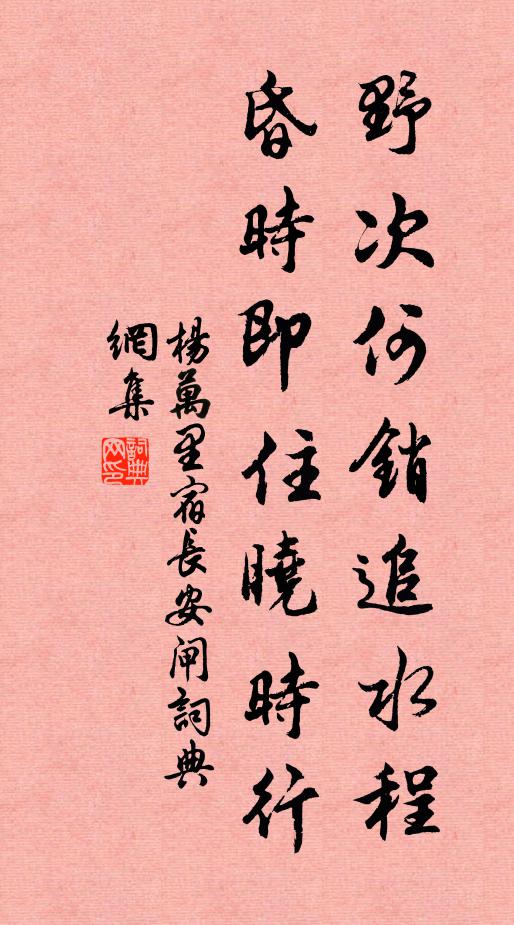 野次何銷追水程
昏時即住曉時行
楊萬里宿長安閘詞典
網集
詞典網印